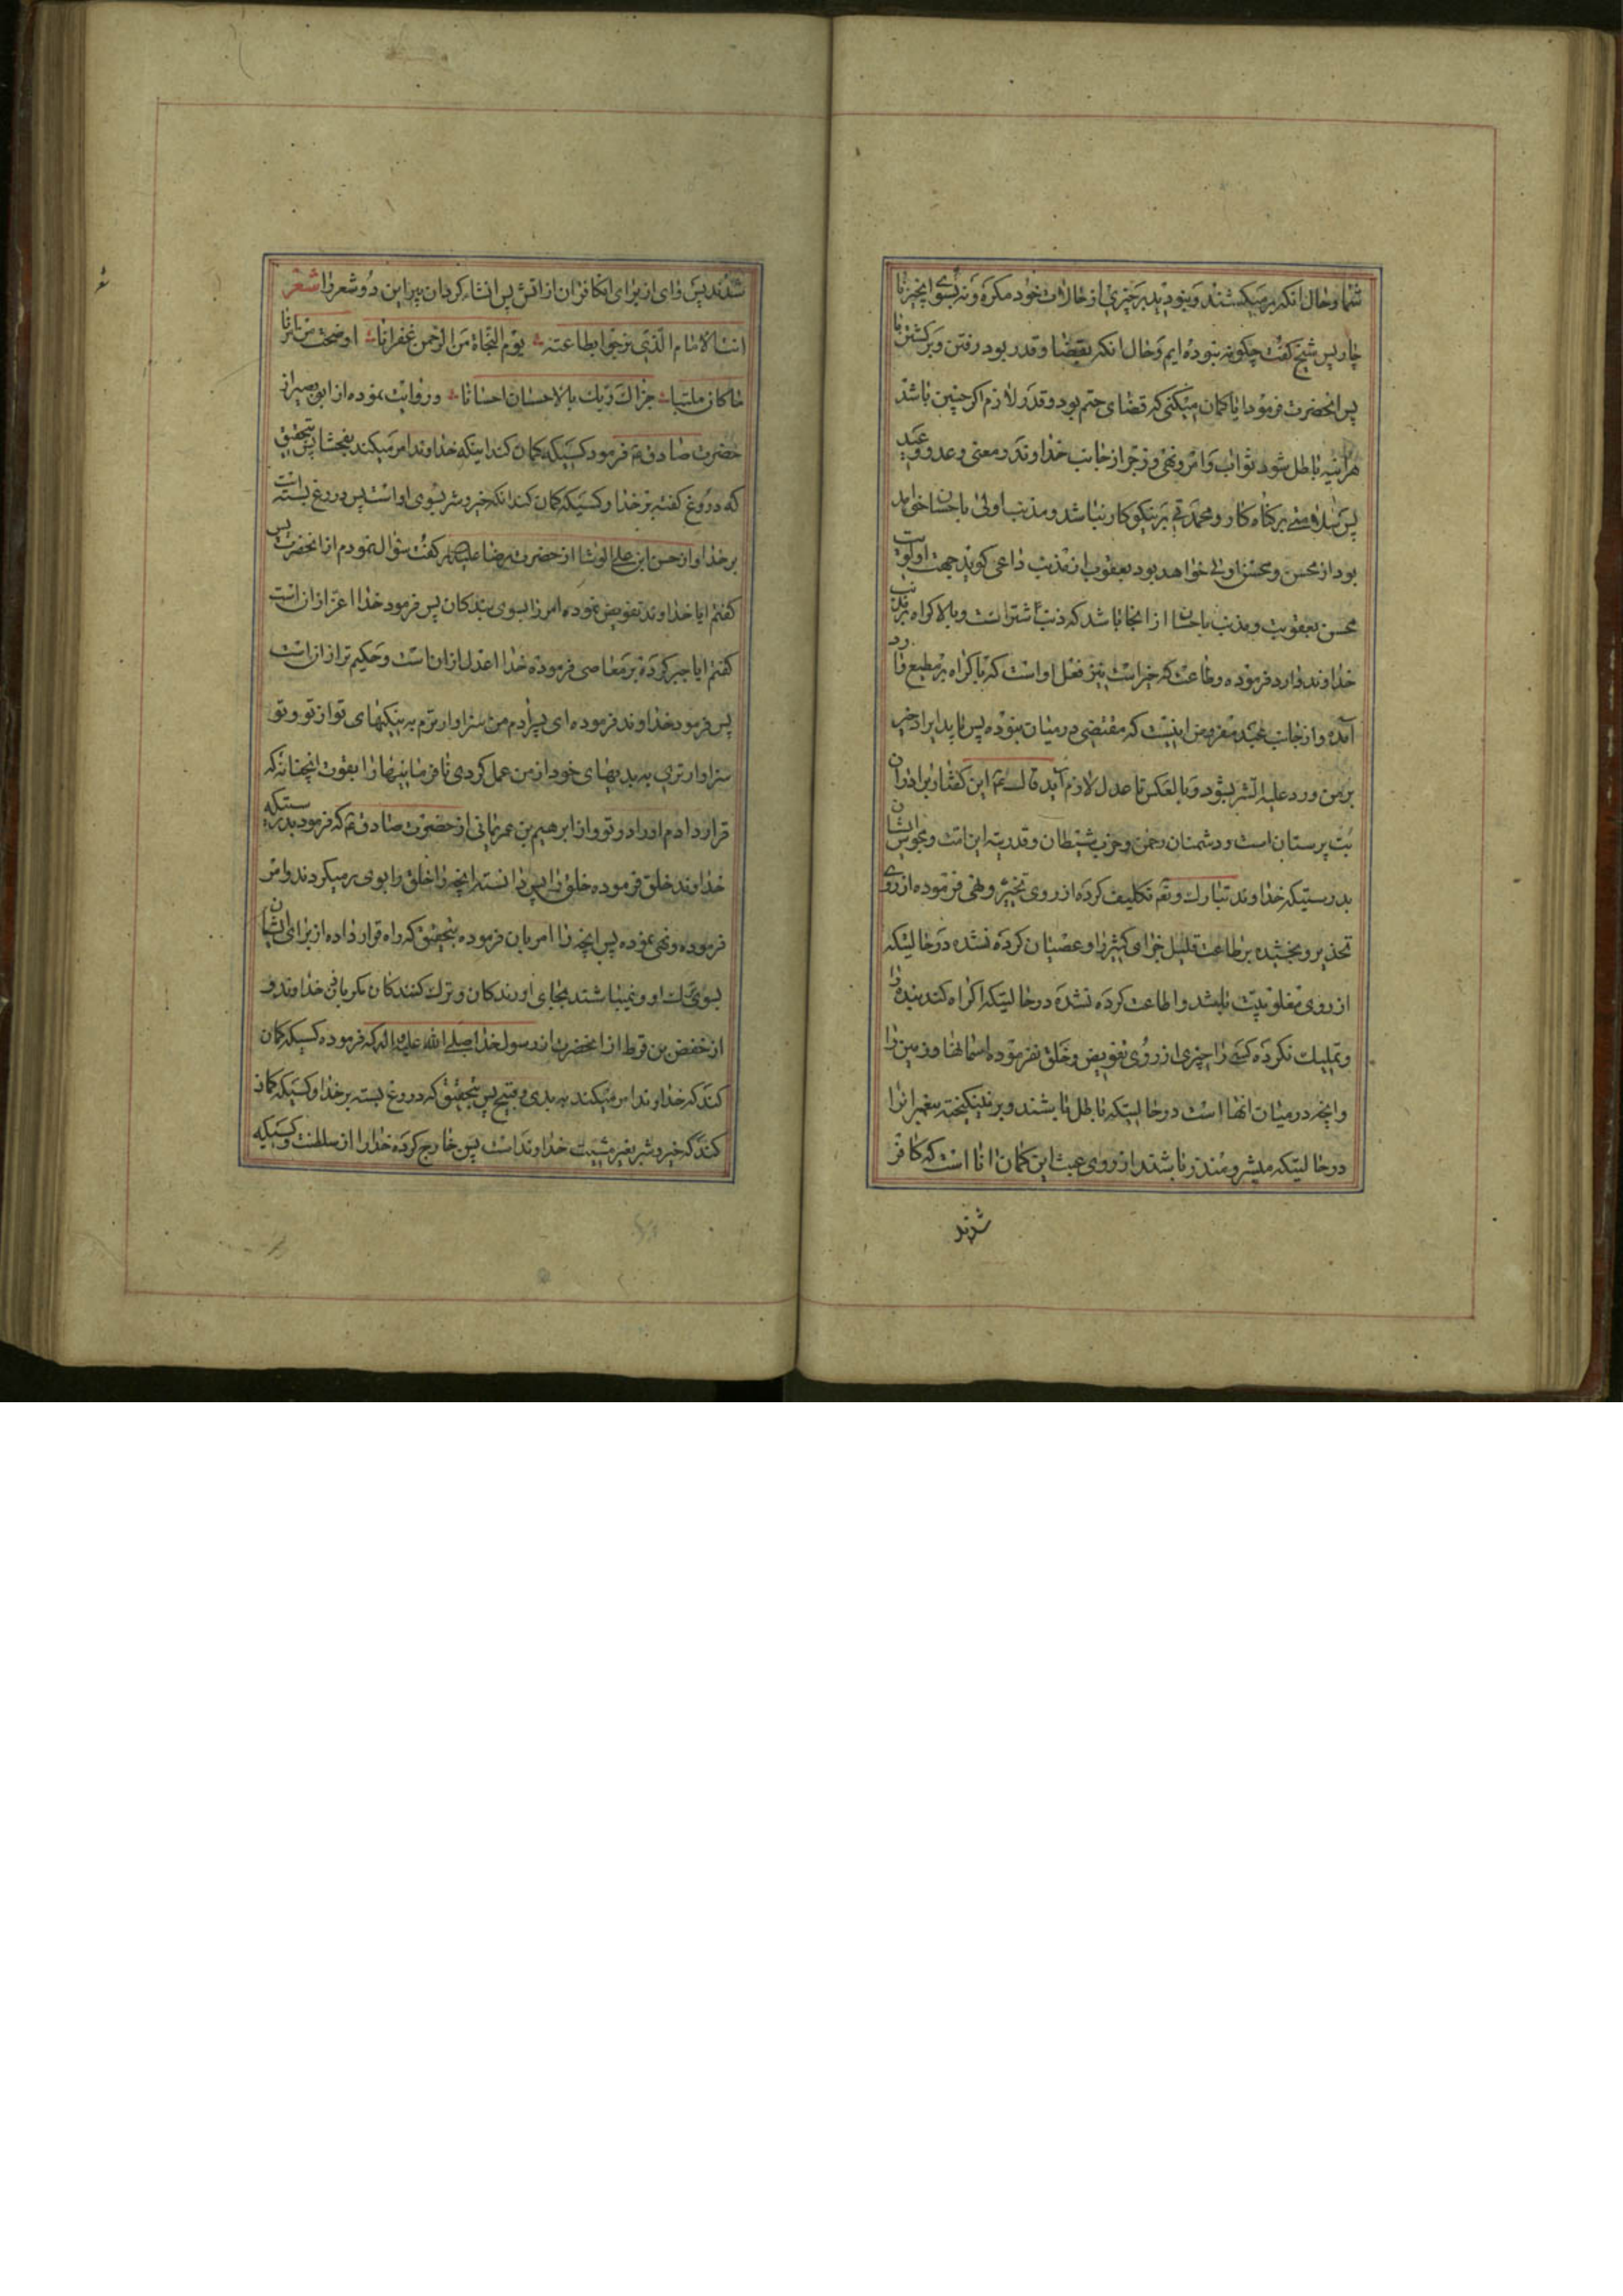 شما و حال آنکه برمیکشتند و نبودید بر چیزی از حالات خود مکره و نه بسوی انچیز نا
چار پس شیخ کفت چکونه نبوده ایم و حال انکه بقضا و قدر بود رفتن و برکشتن ما
پس انحضرت فرمود ایا کمان میکنی که قضای حتم بود و قدر لازم اکر چنین باشد
هراینه باطل شود ثواب و امر و نهی و زجر از جانب خداوند و معنی وعد و وعید
پس نباشد بر کناه کار و محمدتی بر نیکو کار نباشد و مذنب اولی باحسان خواهد
بود از محسن و محسن اولی خواهد بود بعقوب از مذنب داعی کوید جهت اولویت
محسن بعقوبت و مذنب باحسان از انجا باشد که ذنب شر است و بالاکراه بر مذنب
خداوند وارد فرموده و طاعت که خیر است نیز فعل او است که با کراه بر مطیع وارد
آمده و از جانب عبد مفروض اینست که مقتضی در میان نبوده پس باید ایراد خیر
بر من ورد علیه الشر بشود و بالعکس تا عدل لازم آید قال ع این کفتار برادران
بت پرستان است و دشمنان رحمن و حزب شیطان و قدریه این امت و مجوس ایشان
بدرستیکه خداوند تبارک و تعم تکلیف کرده از روی تخییر و نهی فرموده از روی
تحذیر و بخشیده بر طاعت قلیل جزای کثیر را و عصیان کرده نشده در حالیتکه
از روی مغلوبیت باشد و اطاعت کرده نشده در حالیتکه اکراه کند بنده را
و تملیک نکرده کسی را چیزی از روی تفویض و خلق نفرموده اسمانها و زمین را
و انچه در میان انها است در حالیتکه باطل باشند و برنینکیخته پیغمبرانرا
در حالیتکه مبشر و منذر باشند از روی عبث این کمان انا است که کافر
شدند
شدند پس وای از برای انکافران از اتش پس انشاء کردان پیر این دو شعر را شعر
انت الامام الذی نرجوا بطاعته یوم النجاة من الرحمن غفرانا اوضحت من امرنا
ما کان ملتبسا جزاک ربک بالاحسان احسانا و روایت نموده از ابوبصیر از
حضرت صادق ع فرمود کسیکه کمان کند اینکه خداوند امر میکند بفحشا پس بتحقیق
که دروغ کفته بر خدا و کسیکه کمان کند انکه خیر و شر بسوی او است پس دروغ بسته است
بر خدا و از حسن ابن علی الوشا از حضرت رضا علیه کفت سؤال نمودم از انحضرت پس
کفتم ایا خداوند تفویض نموده امر را بسوی بندکان پس فرمود خدا اعز از ان است
کفتم ایا جبر کرده بر معاصی فرموده خدا اعدل از ان است و حکیم تر از ان است
پس فرمود خداوند فرموده ای پسر ادم من سزاوارترم به نیکیهای تو از تو و تو
سزاوارتری به بدیهای خود از من عمل کردی نافرمانیها را بقوت انچنانه که
قرار دادم اورا در تو و از ابرهیم بن عمر یمانی از حضرت صادق ع که فرمود بدرستیکه
خداوند خلق فرموده خلق را پس دانسته انچه را خلق را بوی برمیکردند و امر
فرموده و نهی نموده پس انچه را امر بان فرموده بتحقیق که راه قرار داده از برای ایشان
بسوی ترک او و نمیباشند بجای اورندکان و ترک کنندکان مکر باذن خداوند و
از حفض بن قرط از انحضرت از رسول خدا صلی الله علیه و اله که فرموده کسیکه کمان
کند که خداوند امر میکند به بدی و قبیح پس بتحقیق که دروغ بسته بر خدا و کسیکه کمان
کند که خیر و شر بغیر مشیت خداوند است پس خارج کرده خدا را از سلطنت و کسیکه